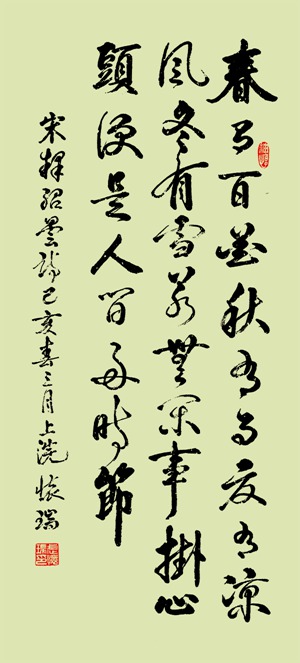 春有百花秋有月夏有涼
風冬有雪若無閑事掛心
頭便是人間好時節
宋釋紹曇詩己亥春三月上浣懷瑞